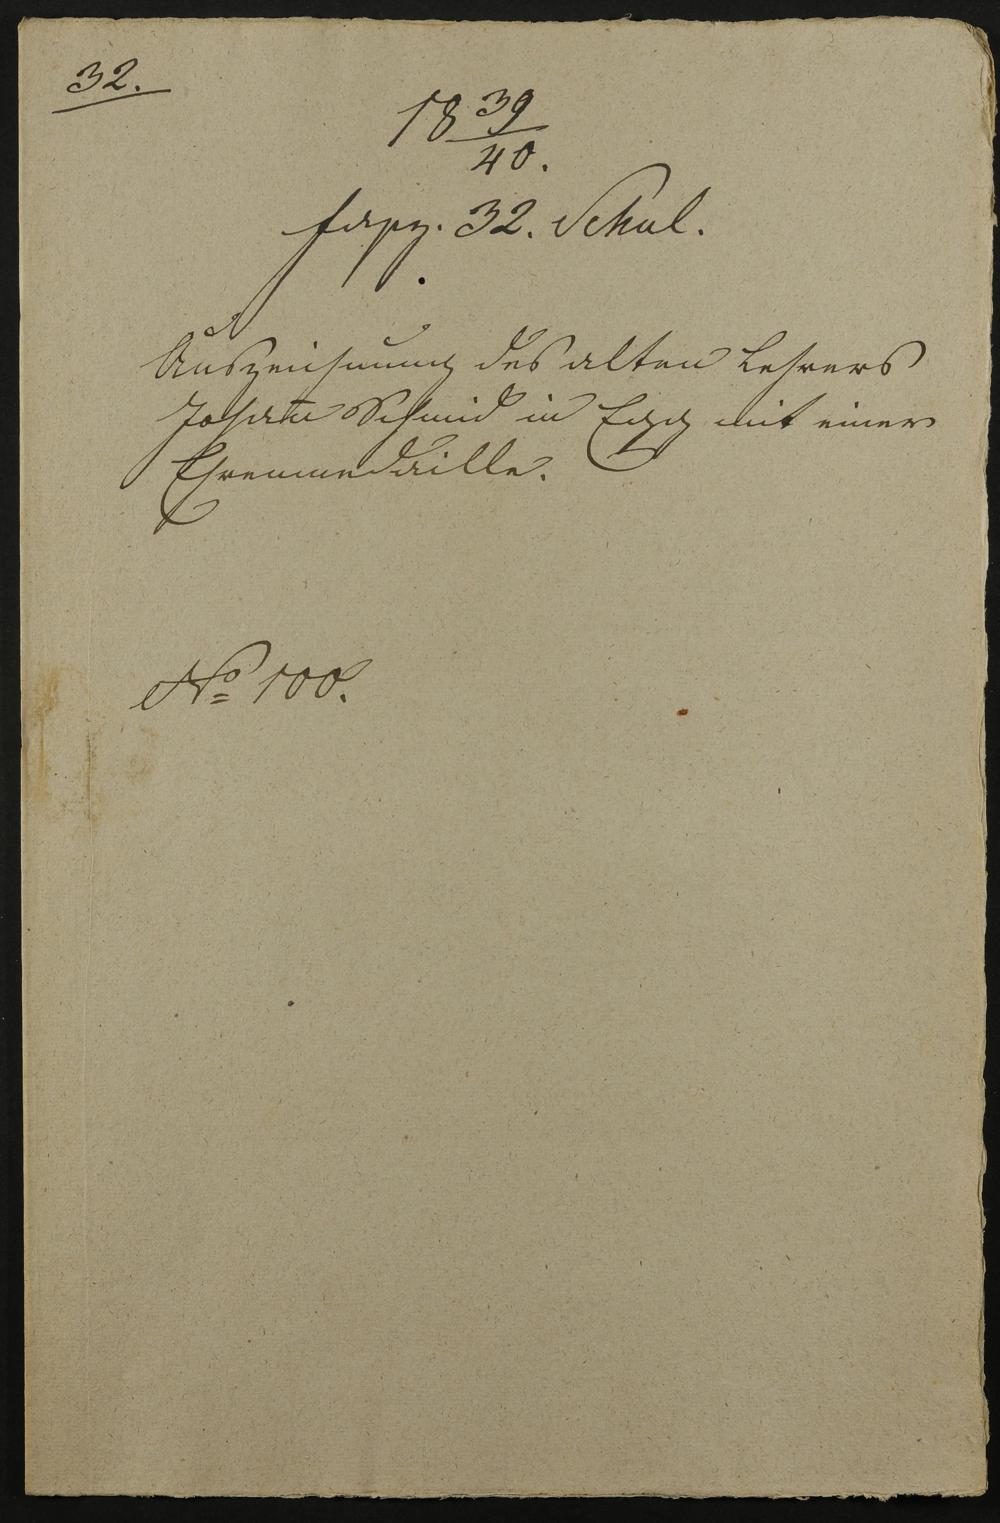 32.
18 39/40.
fasz. 32. Schul.
Auszeichnung des alten Lehrers
Johann Schmid in Egg mit einer
Ehrenmedaille.
No 100.